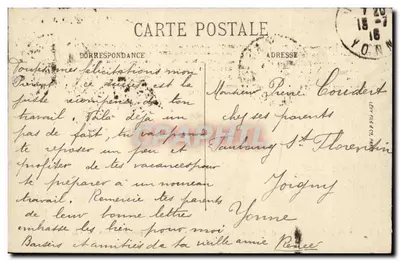 CARTE POSTALE
CORRESPONDANCE
ADRESSE
7 20
18 - 7
16
YONNE
Toutes mes félicitations mon
Pierrot, ce succès est la
juste récompense de ton
travail. Voilà déjà un
pas de fait, tu vas pouvoir
te reposer un peu et
profiter de tes vacances pour
te préparer à un nouveau
travail. Remercie tes parents
de leur bonne lettre
embrasse les bien pour moi
Baisers et amitiés de ta vieille amie Renée
Monsieur Pierre Coudert
chez ses parents
Faubourg St Florentin
Joigny
Yonne